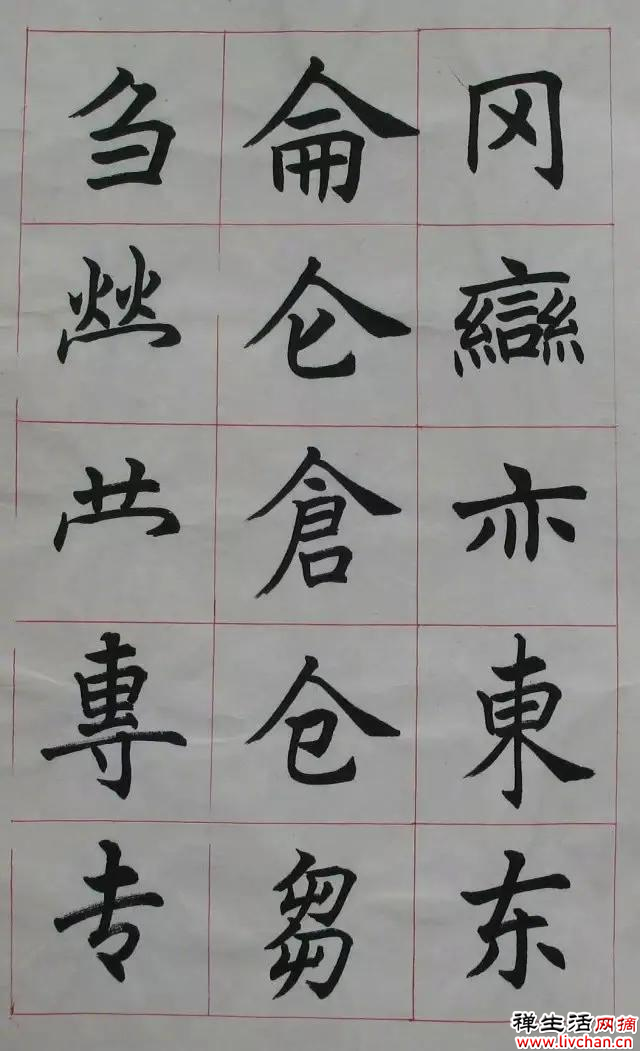 冈䜌亦東东
侖仑倉仓芻
刍𤇾𫇦專专
禅生活网摘
www.livchan.cn